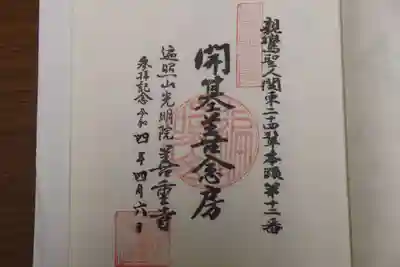 親鸞聖人関東二十四輩本願第十二番
開基善念房
遍照山光明院善重寺
参拝記念令和四年四月六日